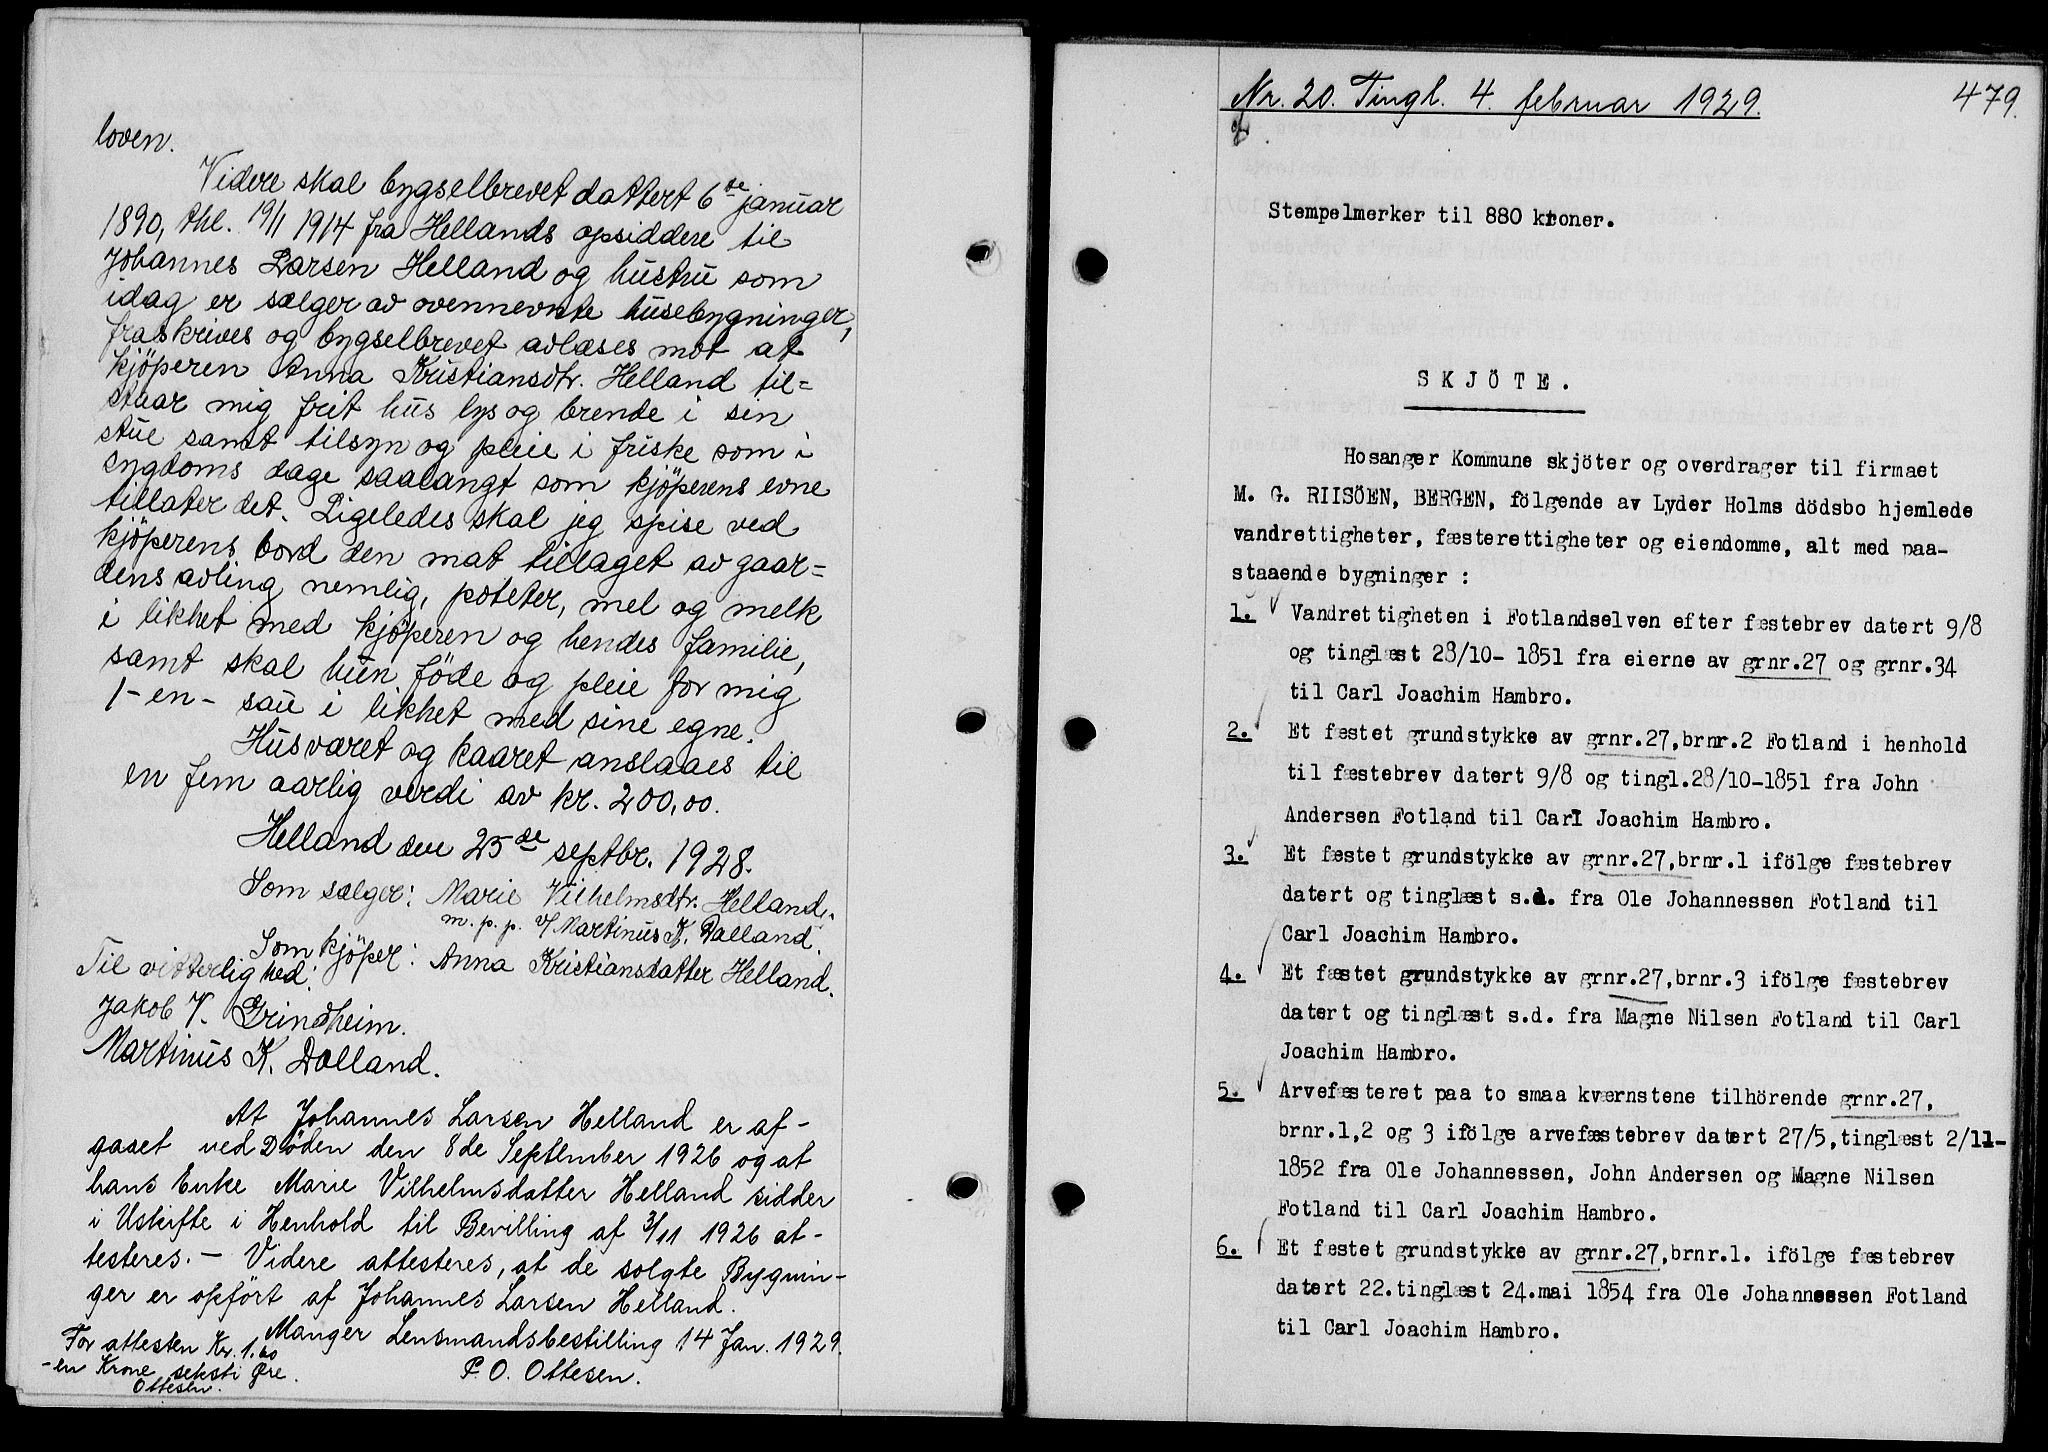 loven.
Videre skal bygselbrevet dattert 6te januar
1890, thl. 19/1 1914 fra Hellands opsiddere til
Johannes Larsen Helland og hustru som
idag er sælger av ovennevnte husebygninger,
fraskrives og bygselbrevet avlæses mot at
kjöperen Anna Kristiansdtr. Helland til=
staar mig frit hus lys og brende i sin
stue samt tilsyn og pleie i friske som i
sygdoms dage saalangt som kjöperens evne
tillater det. Ligeledes skal jeg spise ved
kjöperens bord den mat tillaget av gaar=
dens avling nemlig, poteter, mel og melk
i likhet med kjöperen og hendes familie,
samt skal hun föde og pleie for mig
1-en- sau i likhet med sine egne.
Husværet og kaaret anslaaes til
en fem aarlig verdi av kr. 200,00.
Helland den 25de septbr. 1928.
Som sælger: Marie Vilhelmsdtr. Helland.
m. p. p. v/ Martinus K. Dalland.
Som kjöper: Anna Kristiansdatter Helland.
Til vitterlighed:
Jakob V. Grindheim.
Martinus K. Dalland.
At Johannes Larsen Helland er af-
gaaet ved Döden den 8de September 1926 og at
hans Enke Marie Vilhelmsdatter Helland sidder
i Uskifte i Henhold til Bevilling af 3/11 1926 at-
testeres. - Videre attesteres, at de solgte Bygnin-
ger er opfört af Johannes Larsen Helland.
Manger Lensmandsbestilling 14 Jan. 1929.
P. O. Ottesen.
For attesten Kr. 1.60
-en Krone seksti Øre.
Ottesen.
Nr. 20. Tingl. 4. februar 1929.
479.
Stempelmerker til 880 kroner.
SKJÖTE.
Hosanger Kommune skjöter og overdrager til firmaet
M. G. RIISÖEN, BERGEN, fölgende av Lyder Holms dödsbo hjemlede
vandrettigheter, fæsterettigheter og eiendomme, alt med paa-
staaende bygninger :
1. Vandrettigheten i Fotlandselven efter fæstebrev datert 9/8
og tinglæst 28/10- 1851 fra eierne av grnr.27 og grnr.34
til Carl Joachim Hambro.
2. Et fæstet grundstykke av grnr.27,brnr.2 Fotland i henhold
til fæstebrev datert 9/8 og tingl.28/10-1851 fra John
Andersen Fotland til Carl Joachim Hambro.
3. Et fæstet grundstykke av grnr.27,brnr.1 ifölge fæstebrev
datert og tinglæst s.d. fra Ole Johannessen Fotland til
Carl Joachim Hambro.
4. Et fæstet grundstykke av grnr.27,brnr.3 ifölge fæstebrev
datert og tinglæst s.d. fra Magne Nilsen Fotland til Carl
Joachim Hambro.
5. Arvefæsteret paa to smaa kværnstene tilhörende grnr.27,
brnr.1,2 og 3 ifölge arvefæstebrev datert 27/5,tinglæst 2/11-
1852 fra Ole Johannessen, John Andersen og Magne Nilsen
Fotland til Carl Joachim Hambro.
6. Et fæstet grundstykke av grnr.27,brnr.1. ifölge fæstebrev
datert 22.tinglæst 24.mai 1854 fra Ole Johannessen Fotland
til Carl Joachim Hambro.